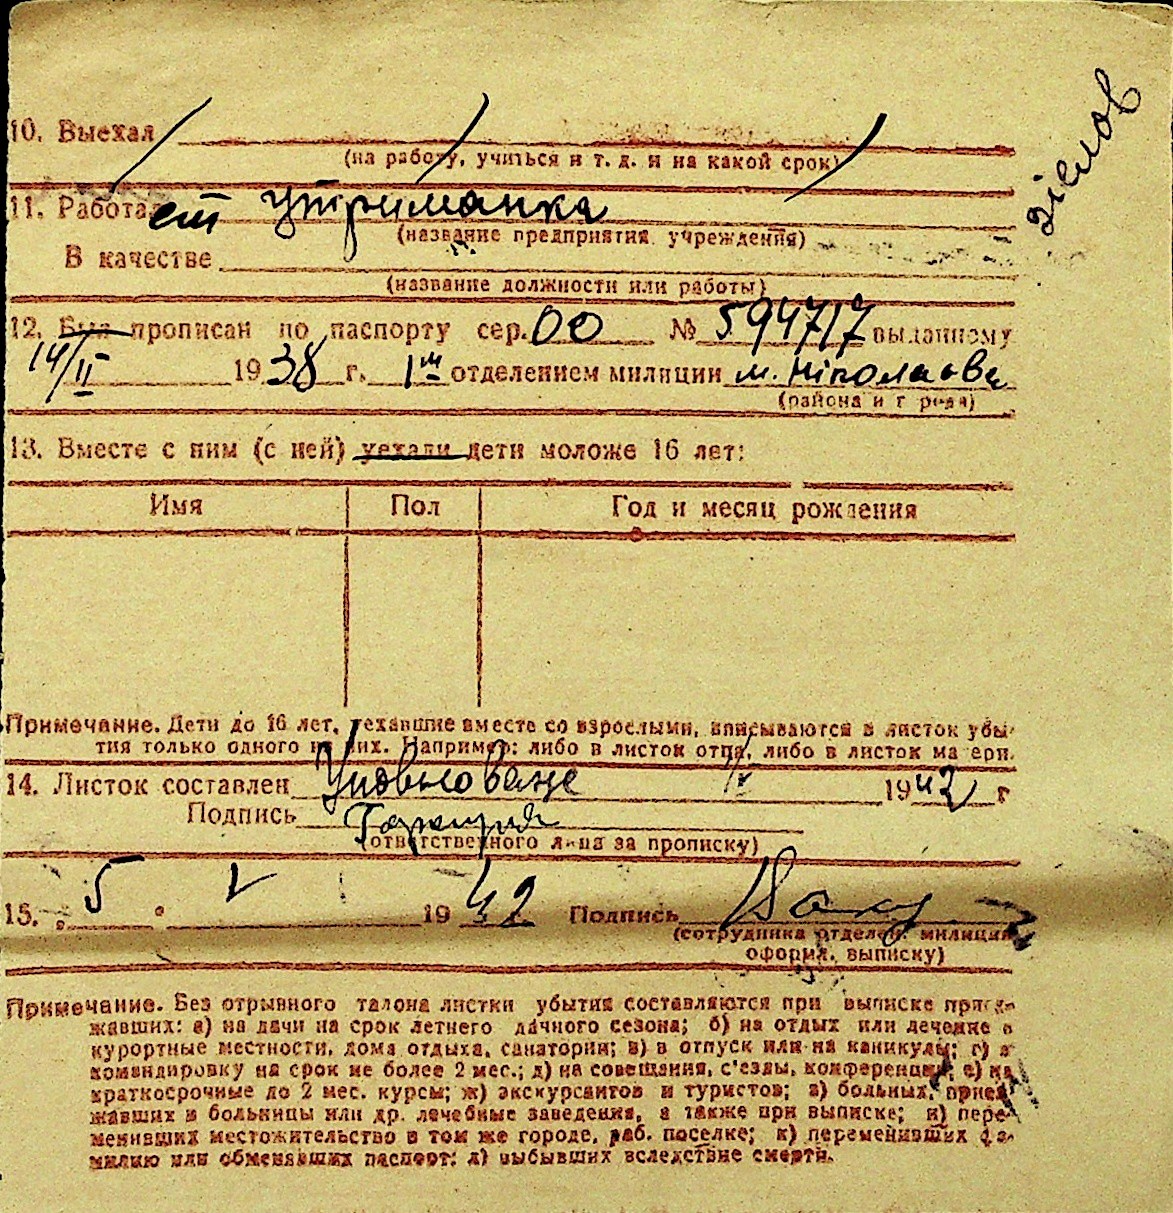 10. Выехал
(на работу, учиться и т. д. и на какой срок)
11. Работает утриманка
(название предприятия, учреждения)
В качестве
(название должности или работы)
12. Был прописан по паспорту сер. ОО № 594717 выданному
14/II 1938 г. 1м отделением милиции м. Ніколаєва
(района и города)
13. Вместе с ним (с ней) уехали дети моложе 16 лет:
Имя Пол Год и месяц рождения
Примечание. Дети до 16 лет, уехавшие вместе со взрослыми, вписываются в листок убы-
тия только одного из них. Например: либо в листок отца, либо в листок матери.
14. Листок составлен 1942 г
Подпись
(ответственного лица за прописку)
15. 5 V 1942 Подпись
(сотрудника отделен. милиции
оформ. выписку)
Примечание. Без отрывного талона листки убытия составляются при выписке приез-
жавших: а) на дачи на срок летнего дачного сезона; б) на отдых или лечение в
курортные местности, дома отдыха, санатории; в) в отпуск или на каникулы; г) в
командировку на срок не более 2 мес.; д) на совещания, с'езды, конференции; е) на
краткосрочные до 2 мес. курсы; ж) экскурсантов и туристов; з) больных, приез-
жавших в больницы или др. лечебные заведения, а также при выписке; и) пере-
менивших местожительство в том же городе, раб. поселке; к) переменивших фа-
милию или обменявших паспорт; л) выбывших вследствие смерти.